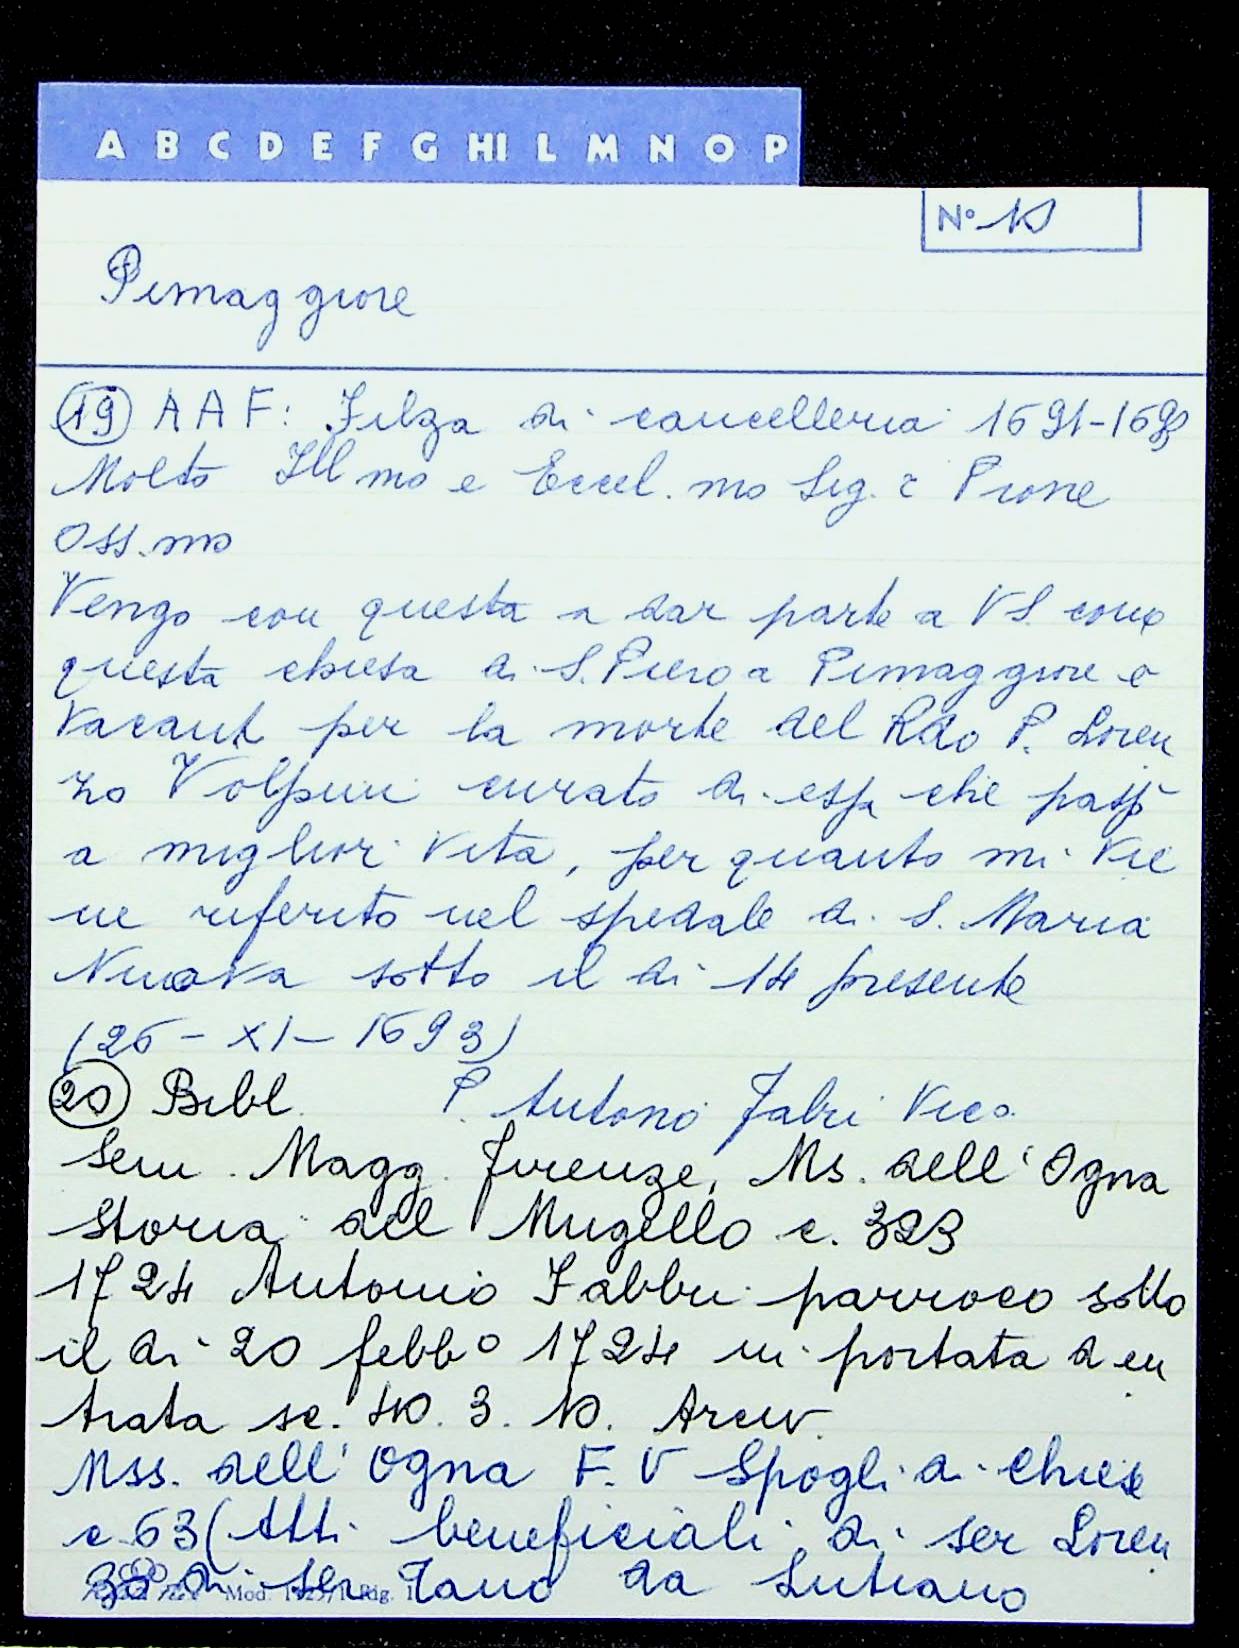 A B C D E F G HI L M N O P
N° 10
Pimaggiore
19 A A F: Filza di cancelleria 1691-1698
Molto Ill mo e Eccel. mo Sig. e Prone
Oss. mo
Vengo con questa a dar parte a VS. come
questa chiesa di S. Piero a Pimaggiore è
vacante per la morte del Rdo P. Loren
zo Volpini curato di essa che passò
a miglior vita, per quanto mi vie
ne riferito nel spedale di S. Maria
Nuova sotto il di 14 presente
(26 - XI - 1693)
20 Bibl. P. Antonio Fabri Vico.
Sem. Magg. Firenze, Ms. dell'Ogna
Storia del Mugello c. 323
1724 Antonio Fabbri parroco sotto
il di 20 febb° 1724 in portata d en
trata sc. 40. 3. 10. Arciv.
Mss. dell'Ogna F. V Spogli di chiese
c. 63 (Atti beneficiali di ser Loren
zo di ser Tano da Lutiano
Mod.